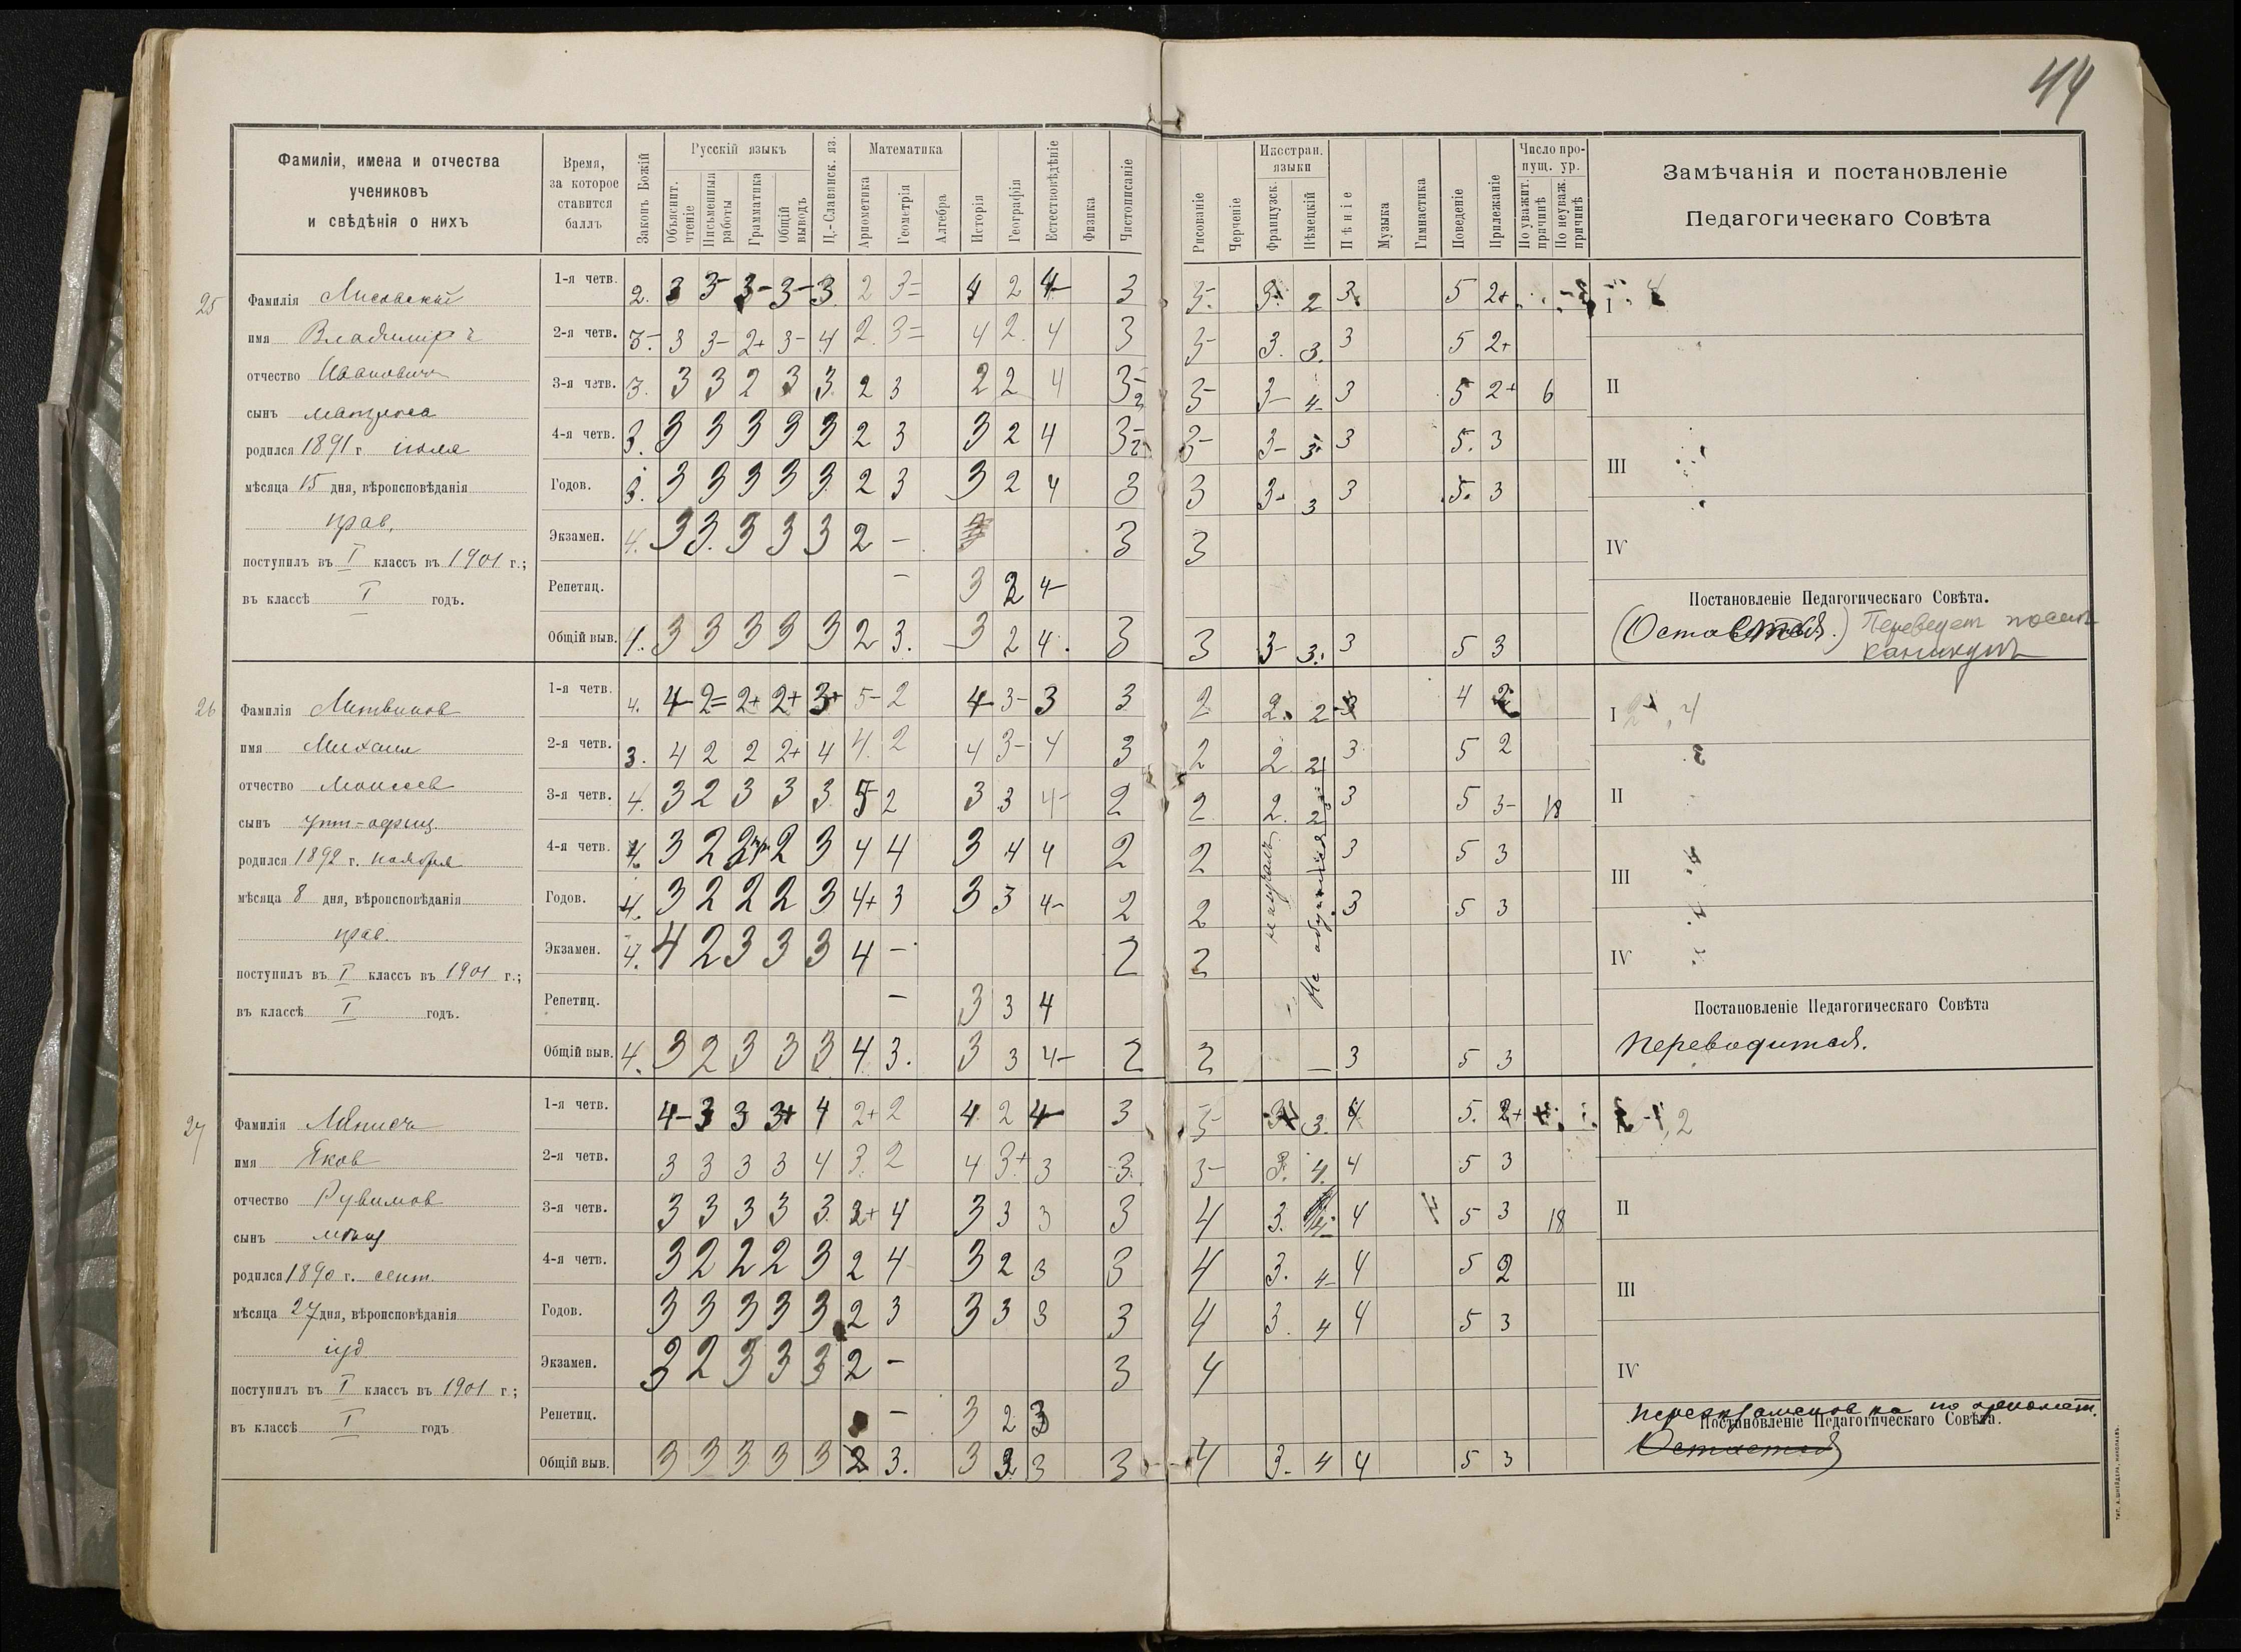 44
Фамиліи, имена и отчества
учениковъ
и свѣдѣнія о нихъ
Время,
за которое
ставится
баллъ
Законъ Божій
Русскій языкъ
Объяснит. чтеніе
Письменныя работы
Грамматика
Общій выводъ
Ц.-Славянск. яз.
Математика
Ариѳметика
Геометрія
Алгебра
Исторія
Географія
Естествовѣдѣніе
Физика
Чистописаніе
Рисованіе
Черченіе
Иностран. языки
Французск.
Нѣмецкій
Пѣніе
Музыка
Гимнастика
Поведеніе
Прилежаніе
Число пропущ. ур.
По уважит. причинѣ
По неуваж. причинѣ
Замѣчанія и постановленіе
Педагогическаго Совѣта
25
Фамилія Лисовскій
имя Владимиръ
отчество Ивановичъ
сынъ
родился 1891 г. июля
мѣсяца 15 дня, вѣроисповѣданія
прав.
поступилъ въ I классъ въ 1901 г.;
въ классѣ I годъ.
1-я четв. 2. 3 3- 3- 3- 3 2 3= 4 2 4- 3 3. 3. 2 3. 5 2+
2-я четв. 3- 3 3- 2+ 3- 4 2. 3= 4 2. 4 3 3- 3. 3. 3 5 2+
3-я четв. 3. 3 3 2 3 3 2 3 2 2 4 3- 3- 3- 4- 3 5 2+ 6
4-я четв. 3. 3 3 3 3 3 2 3 3 2 4 3- 3- 3- 3. 3 5. 3
Годов. 3. 3 3 3 3 3 2 3 3 2 4 3 3 3- 3 3 5. 3
Экзамен. 4. 3 3. 3 3 3 2 - 3 3
Репетиц. - 3 2 4-
Общій выв. 4. 3 3 3 3 3 2 3. 3 2 4. 3 3 3- 3. 3 5 3
I
II
III
IV
Постановленіе Педагогическаго Совѣта.
(Остается.) Переведет после
каникулъ
26
Фамилія Литвинов
имя Михаил
отчество Моисеев
сынъ унт-офиц.
родился 1892 г. ноября
мѣсяца 8 дня, вѣроисповѣданія
прав.
поступилъ въ I классъ въ 1901 г.;
въ классѣ I годъ.
1-я четв. 4. 4- 2= 2+ 2+ 3+ 5- 2 4- 3- 3 3 2 2. 2 3 4 2
2-я четв. 3. 4 2 2 2+ 4 4. 2 4 3- 4 3 2 2. 2 3. 5 2
3-я четв. 4. 3 2 3 3 3 5 2 3 3 4- 2 2 2. 2 3 5 3- 18
4-я четв. 4. 3 2 2 3 4 4 3 4 4 2 2 3 5 3
Годов. 4. 3 2 2 2 3 4+ 3 3 3 4- 2 2 3 5 3
Экзамен. 4. 4 2 3 3 3 4 - 2 2
Репетиц. - 3 3 4
Общій выв. 4. 3 2 3 3 3 4 3. 3 3 4- 2 2 - 3 5 3
Не обучался
I 2-, 4
II
III
IV
Постановленіе Педагогическаго Совѣта
Переводится.
27
Фамилія
имя Яков
отчество Рувимов
сынъ мѣщ
родился 1890 г. сент.
мѣсяца 27 дня, вѣроисповѣданія
іуд
поступилъ въ I классъ въ 1901 г.;
въ классѣ I годъ
1-я четв. 4- 3 3 3+ 4 2+ 2 4 2 4- 3 3- 3. 4 5. 2+
2-я четв. 3 3 3 3 4 3. 2 4 3+ 3 3. 3- 3. 4. 4 5 3
3-я четв. 3 3 3 3 3. 2+ 4 3 3 3 3 4 3. 4 5 3 18
4-я четв. 3 2 2 2 3 2 4 3 2 3 3 4 3. 4- 4 5 2
Годов. 3 3 3 3 3 2 3 3 3 3 3 4 3. 4 4 5 3
Экзамен. 3 2 3 3 3 2 - 3 4
Репетиц. - 3 2 3
Общій выв. 3 3 3 3 3 2 3. 3 3 3 3 4 3- 4 4 5 3
II
III
IV
переэкзаменовка по арифмет.
Постановленіе Педагогическаго Совѣта.
Остается
ТИП. А. ШНЕЙДЕРА, НИКОЛАЕВЪ.